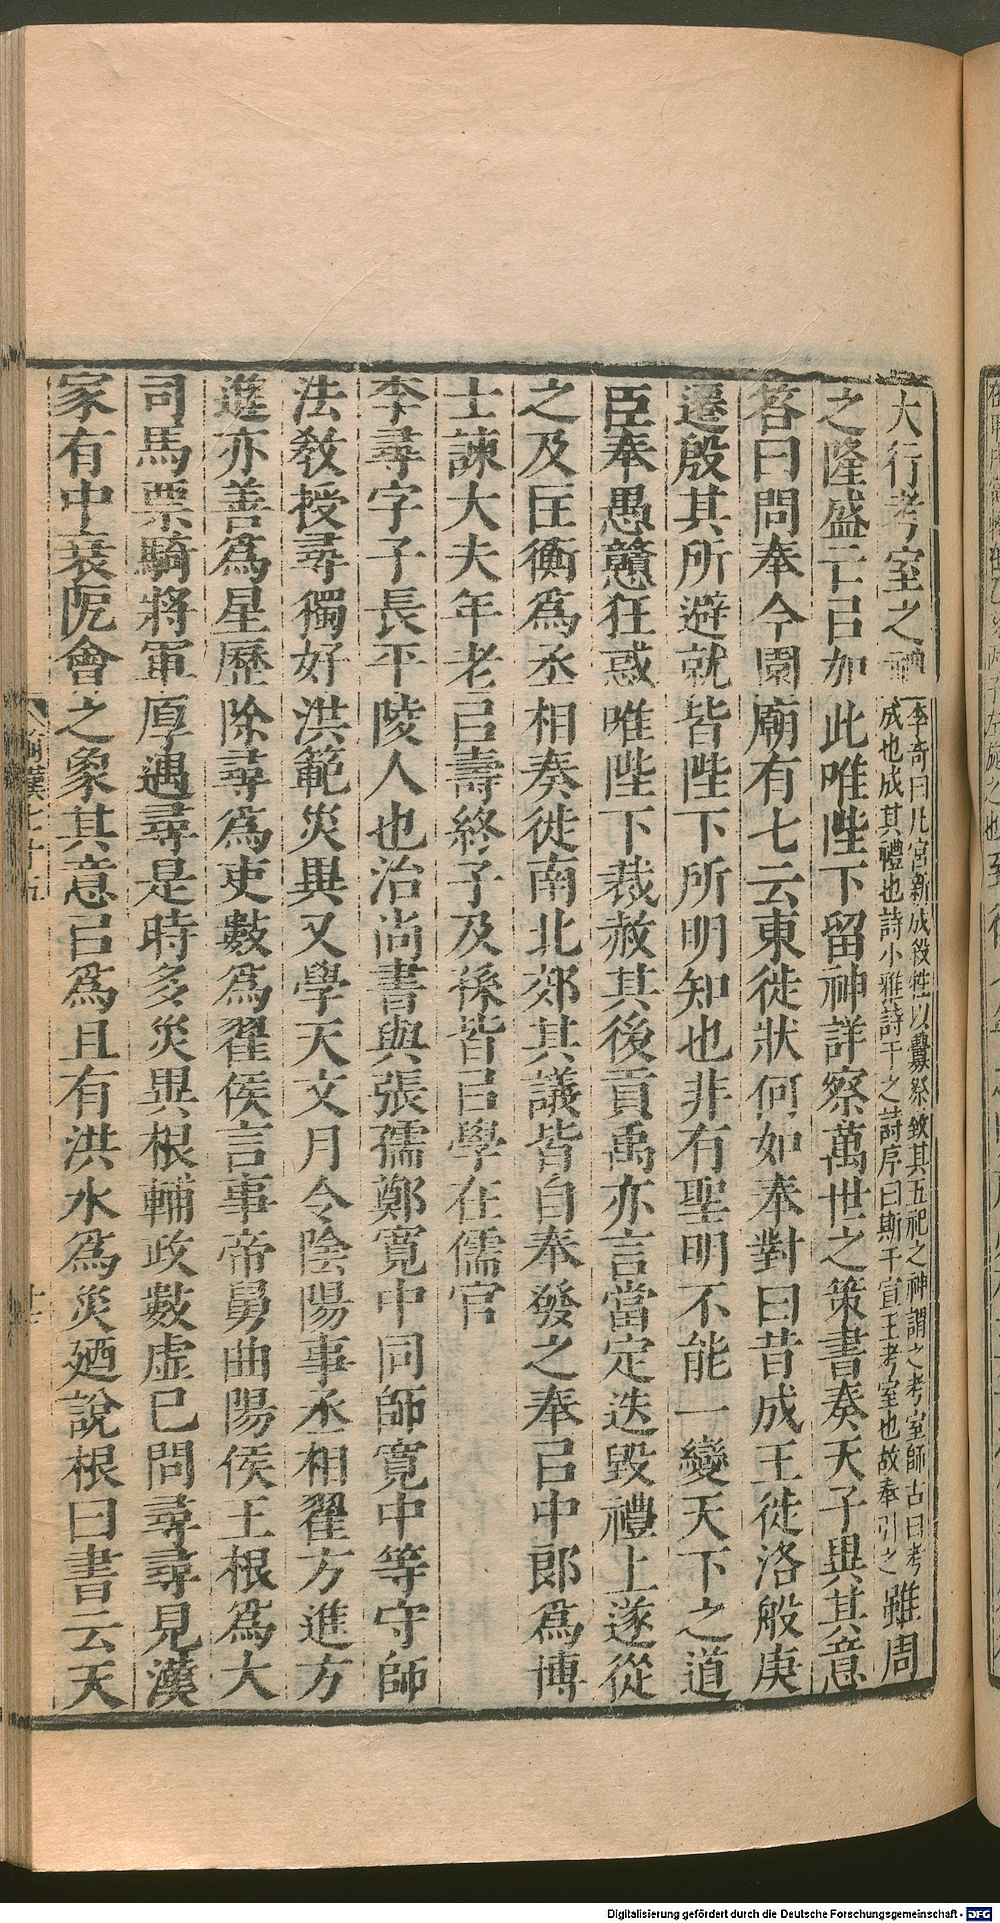 大行考室之神李奇曰凡宮新成殺牲以釁祭致其五祀之神謂之考室師古曰考成也成其禮也詩小雅斯干之詩序曰斯干宣王考室也故奉引之雖周
之隆盛亡㠯加此唯陛下留神詳察萬世之策書奏天子異其意
答曰問奉今園廟有七云東徙狀何如奉對曰昔成王徙洛般庚
遷殷其所避就皆陛下所明知也非有聖明不能一變天下之道
臣奉愚戇狂惑唯陛下裁赦其後貢禹亦言當定迭毀禮上遂從
之及匡衡爲丞相奏徙南北郊其議皆自奉發之奉㠯中郎爲博
士諫大夫年老㠯壽終子及孫皆㠯學在儒官
李尋字子長平陵人也治尚書與張孺鄭寬中同師寬中等守師
法教授尋獨好洪範災異又學天文月令陰陽事丞相翟方進方
進亦善爲星歷除尋爲吏數爲翟侯言事帝舅曲陽侯王根爲大
司馬票騎將軍厚遇尋是時多災異根輔政數虛己問尋尋見漢
家有中衰阸會之象其意㠯爲且有洪水爲災廼說根曰書云天
Digitalisierung gefördert durch die Deutsche Forschungsgemeinschaft - DFG